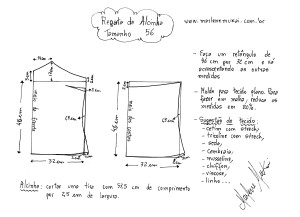 Regata de Alcinha
Tamanho 56
www.marlenemukai.com.br
- Faça um retângulo de
46 cm por 32 cm e vá
acrescentando as outras
medidas
- Molde para tecido plano. Para
fazer em malha, reduza as
medidas em 100%.
- Sugestão de tecido:
- cetim com stretch,
- tricoline com stretch,
- seda,
- cambraia,
- musseline,
- chiffon,
- viscose,
- linho...
46 cm
meio da frente
32 cm
46 cm
meio da costas
32 cm
Alcinha: cortar uma tira com 52,5 cm de comprimento
por 2,5 cm de largura.